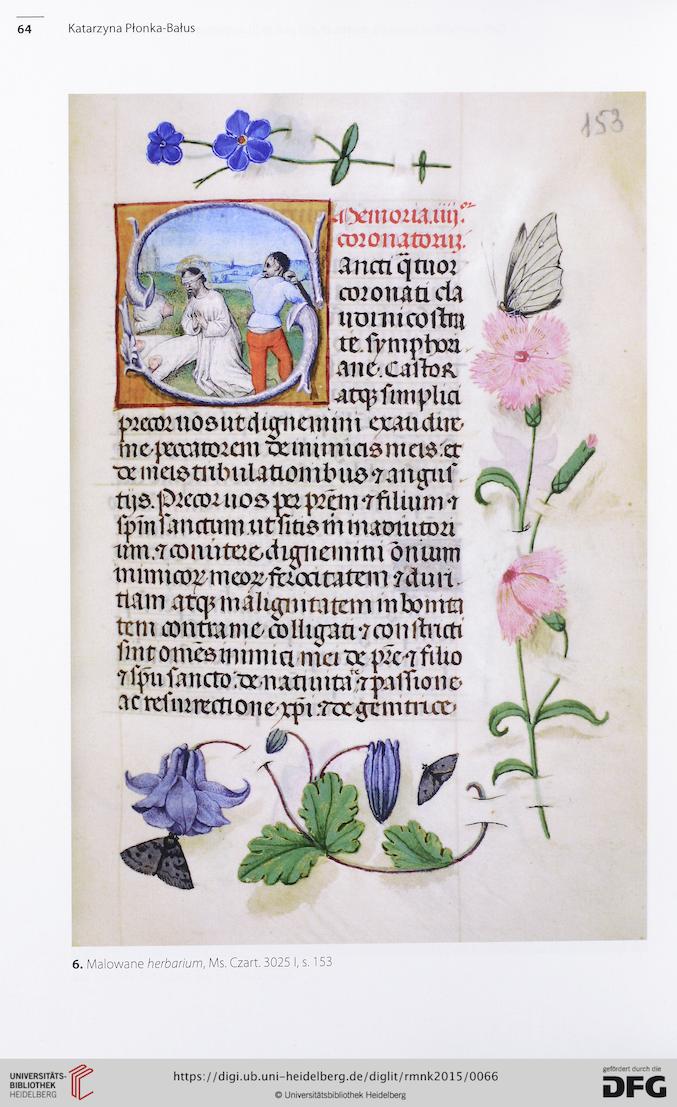 64 Katarzyna Płonka-Bałus
153
Memoria.iiijor
coronatorum.
ancti q̃tuor
coronati cla
udi nicostra
te. symphori
ane. Castor
atqꝫ simplici
precor uos ut dignemini exaudire
me peccatorem de inimicis meis: et
de meis tribulationibus ⁊ angus
tijs. Precor uos per pr̃em ⁊ filium ⁊
sp̃m sanctum ut sitis in m adiutori
um. ⁊ conuitere dignemini õnium
inimicoꝝ meoꝝ ferocitatem ⁊ duri
tiam atqꝫ malignitatem in bonita
tem contra me colligati ⁊ constricti
sint omẽs inimici mei de pr̃e ⁊ filio
⁊ sp̃u sancto: de natiuitate ⁊ passione
ac resurrectione xp̃i ⁊ de genitrice
6. Malowane herbarium, Ms. Czart. 3025 I, s. 153
UNIVERSITÄTS-
BIBLIOTHEK
HEIDELBERG
https://digi.ub.uni-heidelberg.de/diglit/rmnk2015/0066
© Universitätsbibliothek Heidelberg
gefördert durch die
DFG